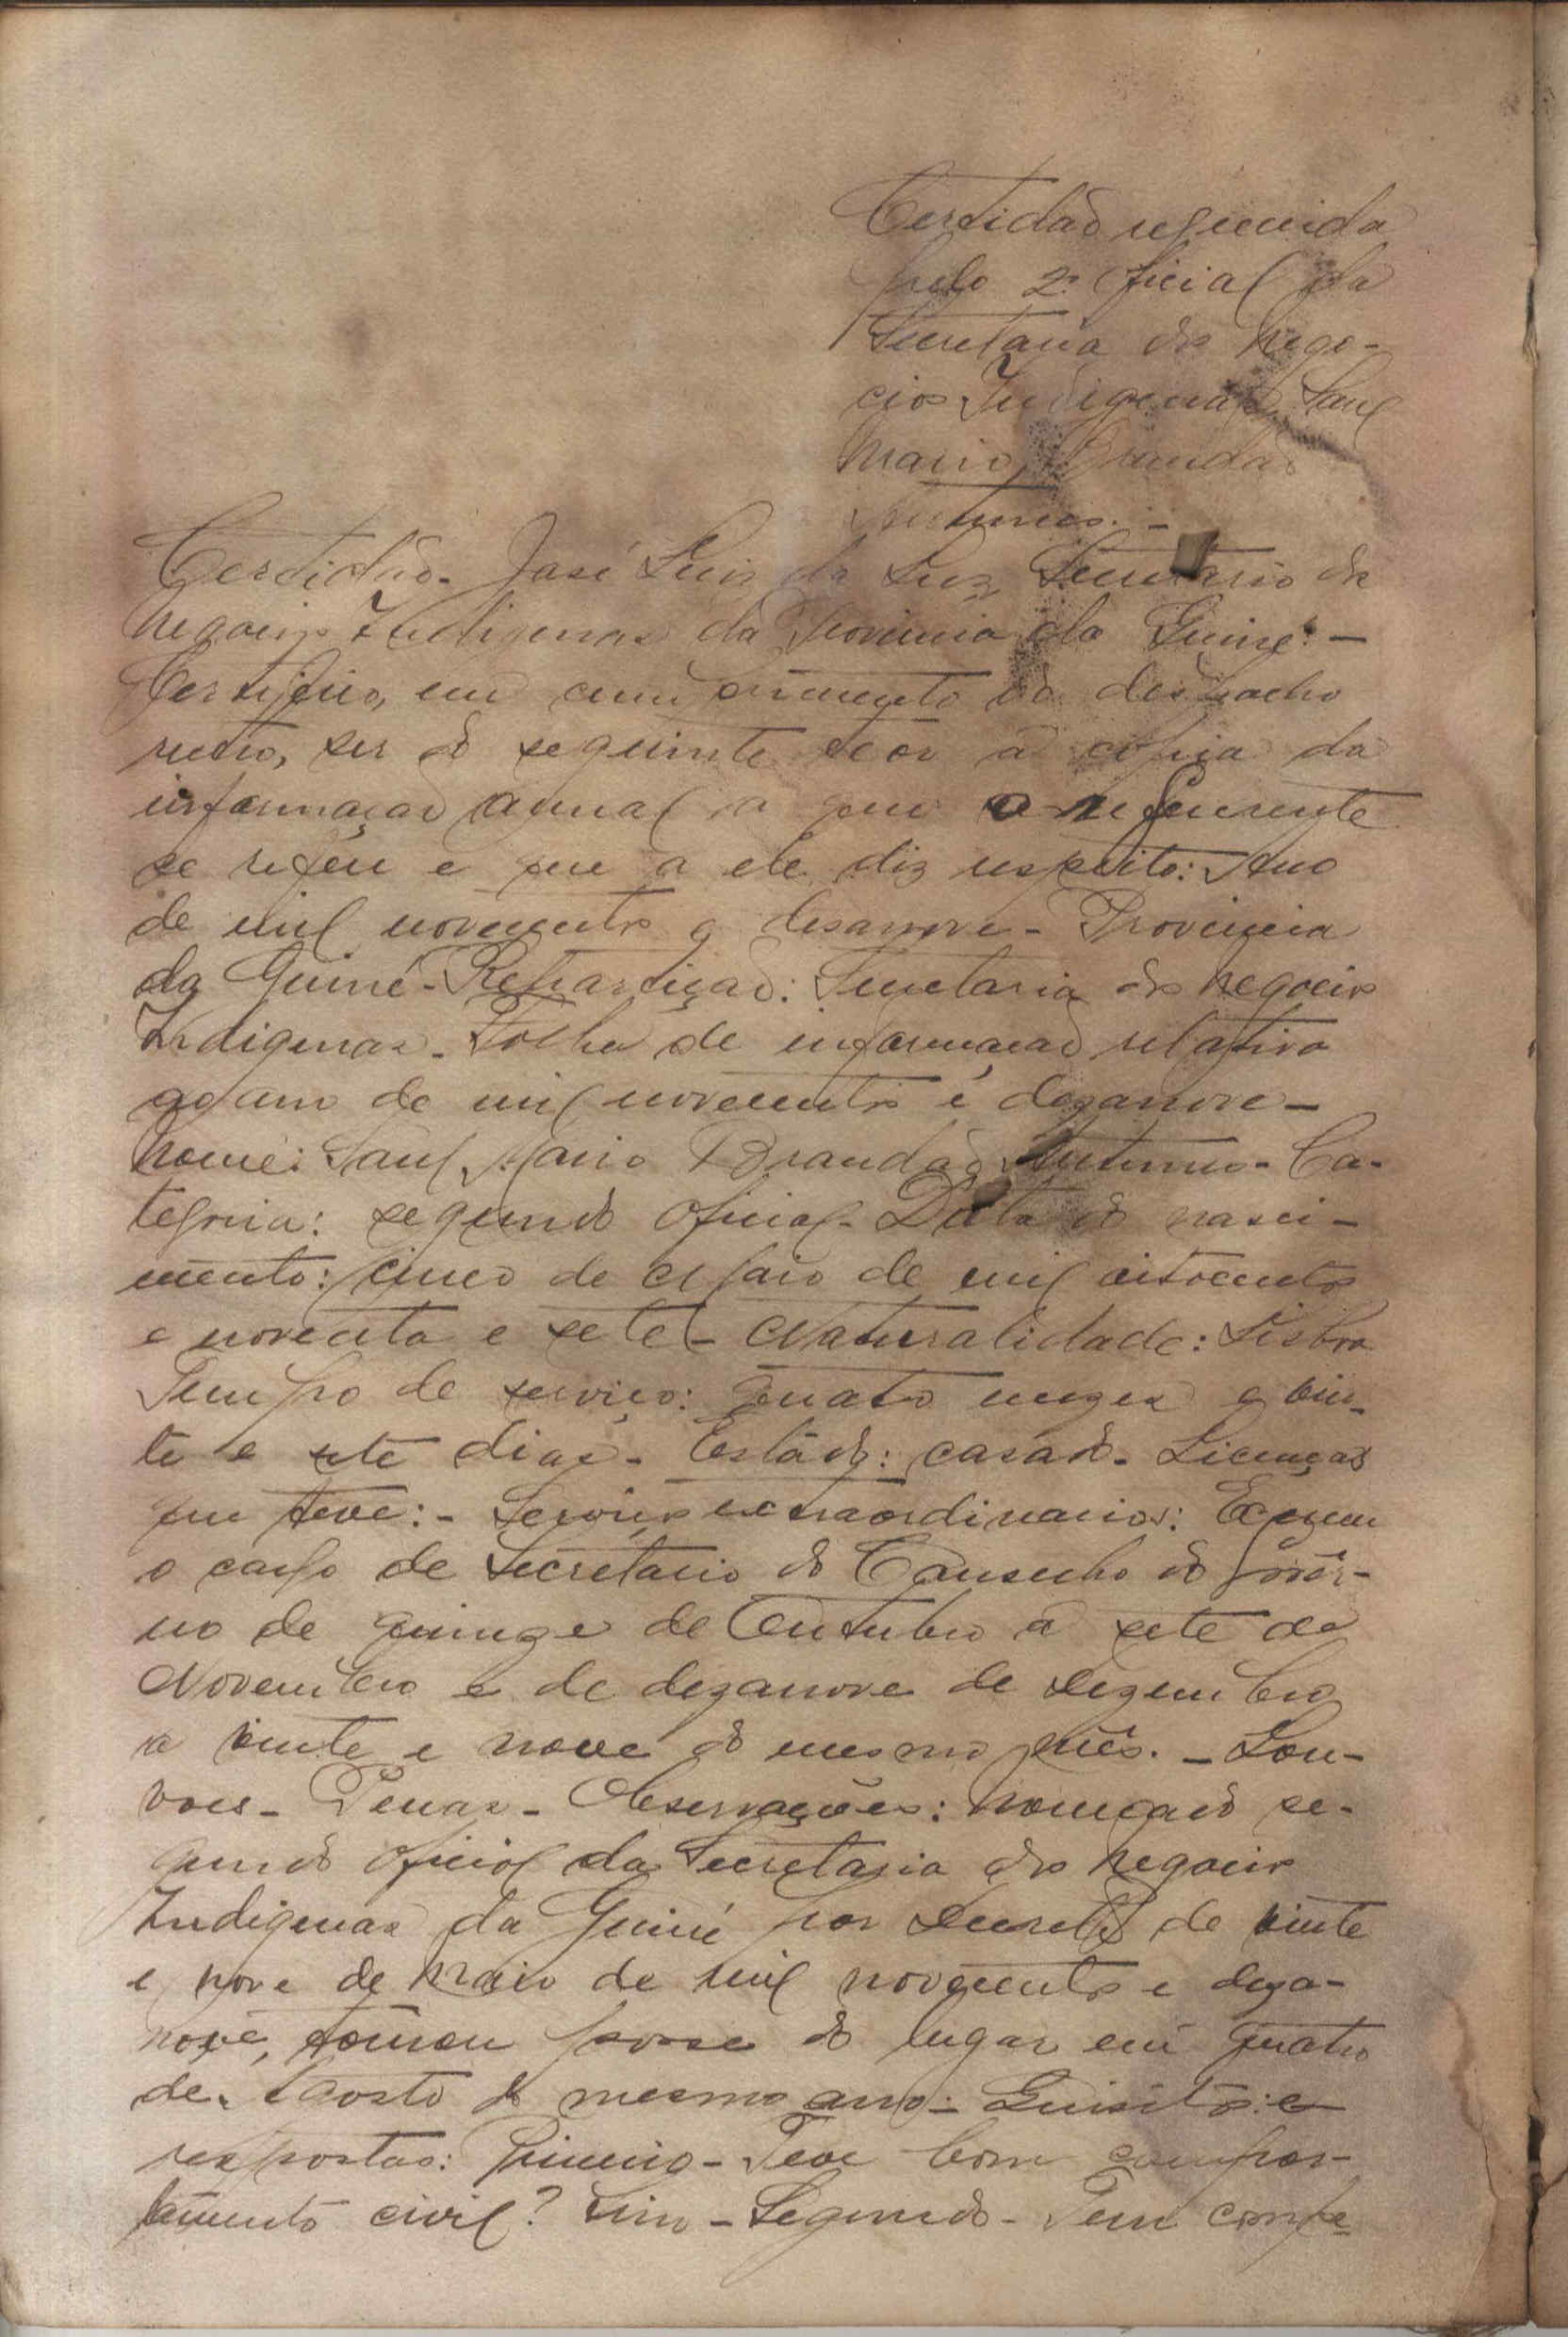 Certidão requerida
pelo 2º oficial da
Secretaria dos Nego-
cios Indigenas, Saul
Mario Brandão
Antunes. -
Certidão - José Luiz da Luz Secretario dos
Negocios Indigenas da Provincia da Guiné: -
Certifico, em cumprimento do despacho
retro, ser do seguinte teor a cópia da
informação anual a que o requerente
se refere e que a ele diz respeito: Ano
de mil novecentos e desanove - Provincia
da Guiné - Repartição: Secretaria dos Negocios
Indigenas - Folha de informação relativa
ao ano de mil novecentos e dezanove -
Nome: Saul Mario Brandão Antunes - Ca-
tegoria: segundo oficial - Data do nasci-
mento: cinco de Maio de mil oitocentos
e noventa e sete - Naturalidade: Lisboa
Tempo de serviço: quatro mezes e vin-
te e sete dias - Estado: casado - Licenças
que teve: - Serviços extraordinarios: Exerceu
o cargo de Secretario do Conselho do Gover-
no de quinze de Outubro a sete de
Novembro e de dezanove de Dezembro
a vinte e nove do mesmo mês. - Lou-
vores - Penas - Observações: Nomeado se-
gundo oficial da Secretaria dos Negocios
Indigenas da Guiné por Decreto de vinte
e nove de Maio de mil novecentos e deza-
nove, tomou posse do lugar em quatro
de Agosto do mesmo ano - Quisitos e
respostas: Primeiro - Teve bom compor-
tamento civil? Sim - Segundo - Tem compe